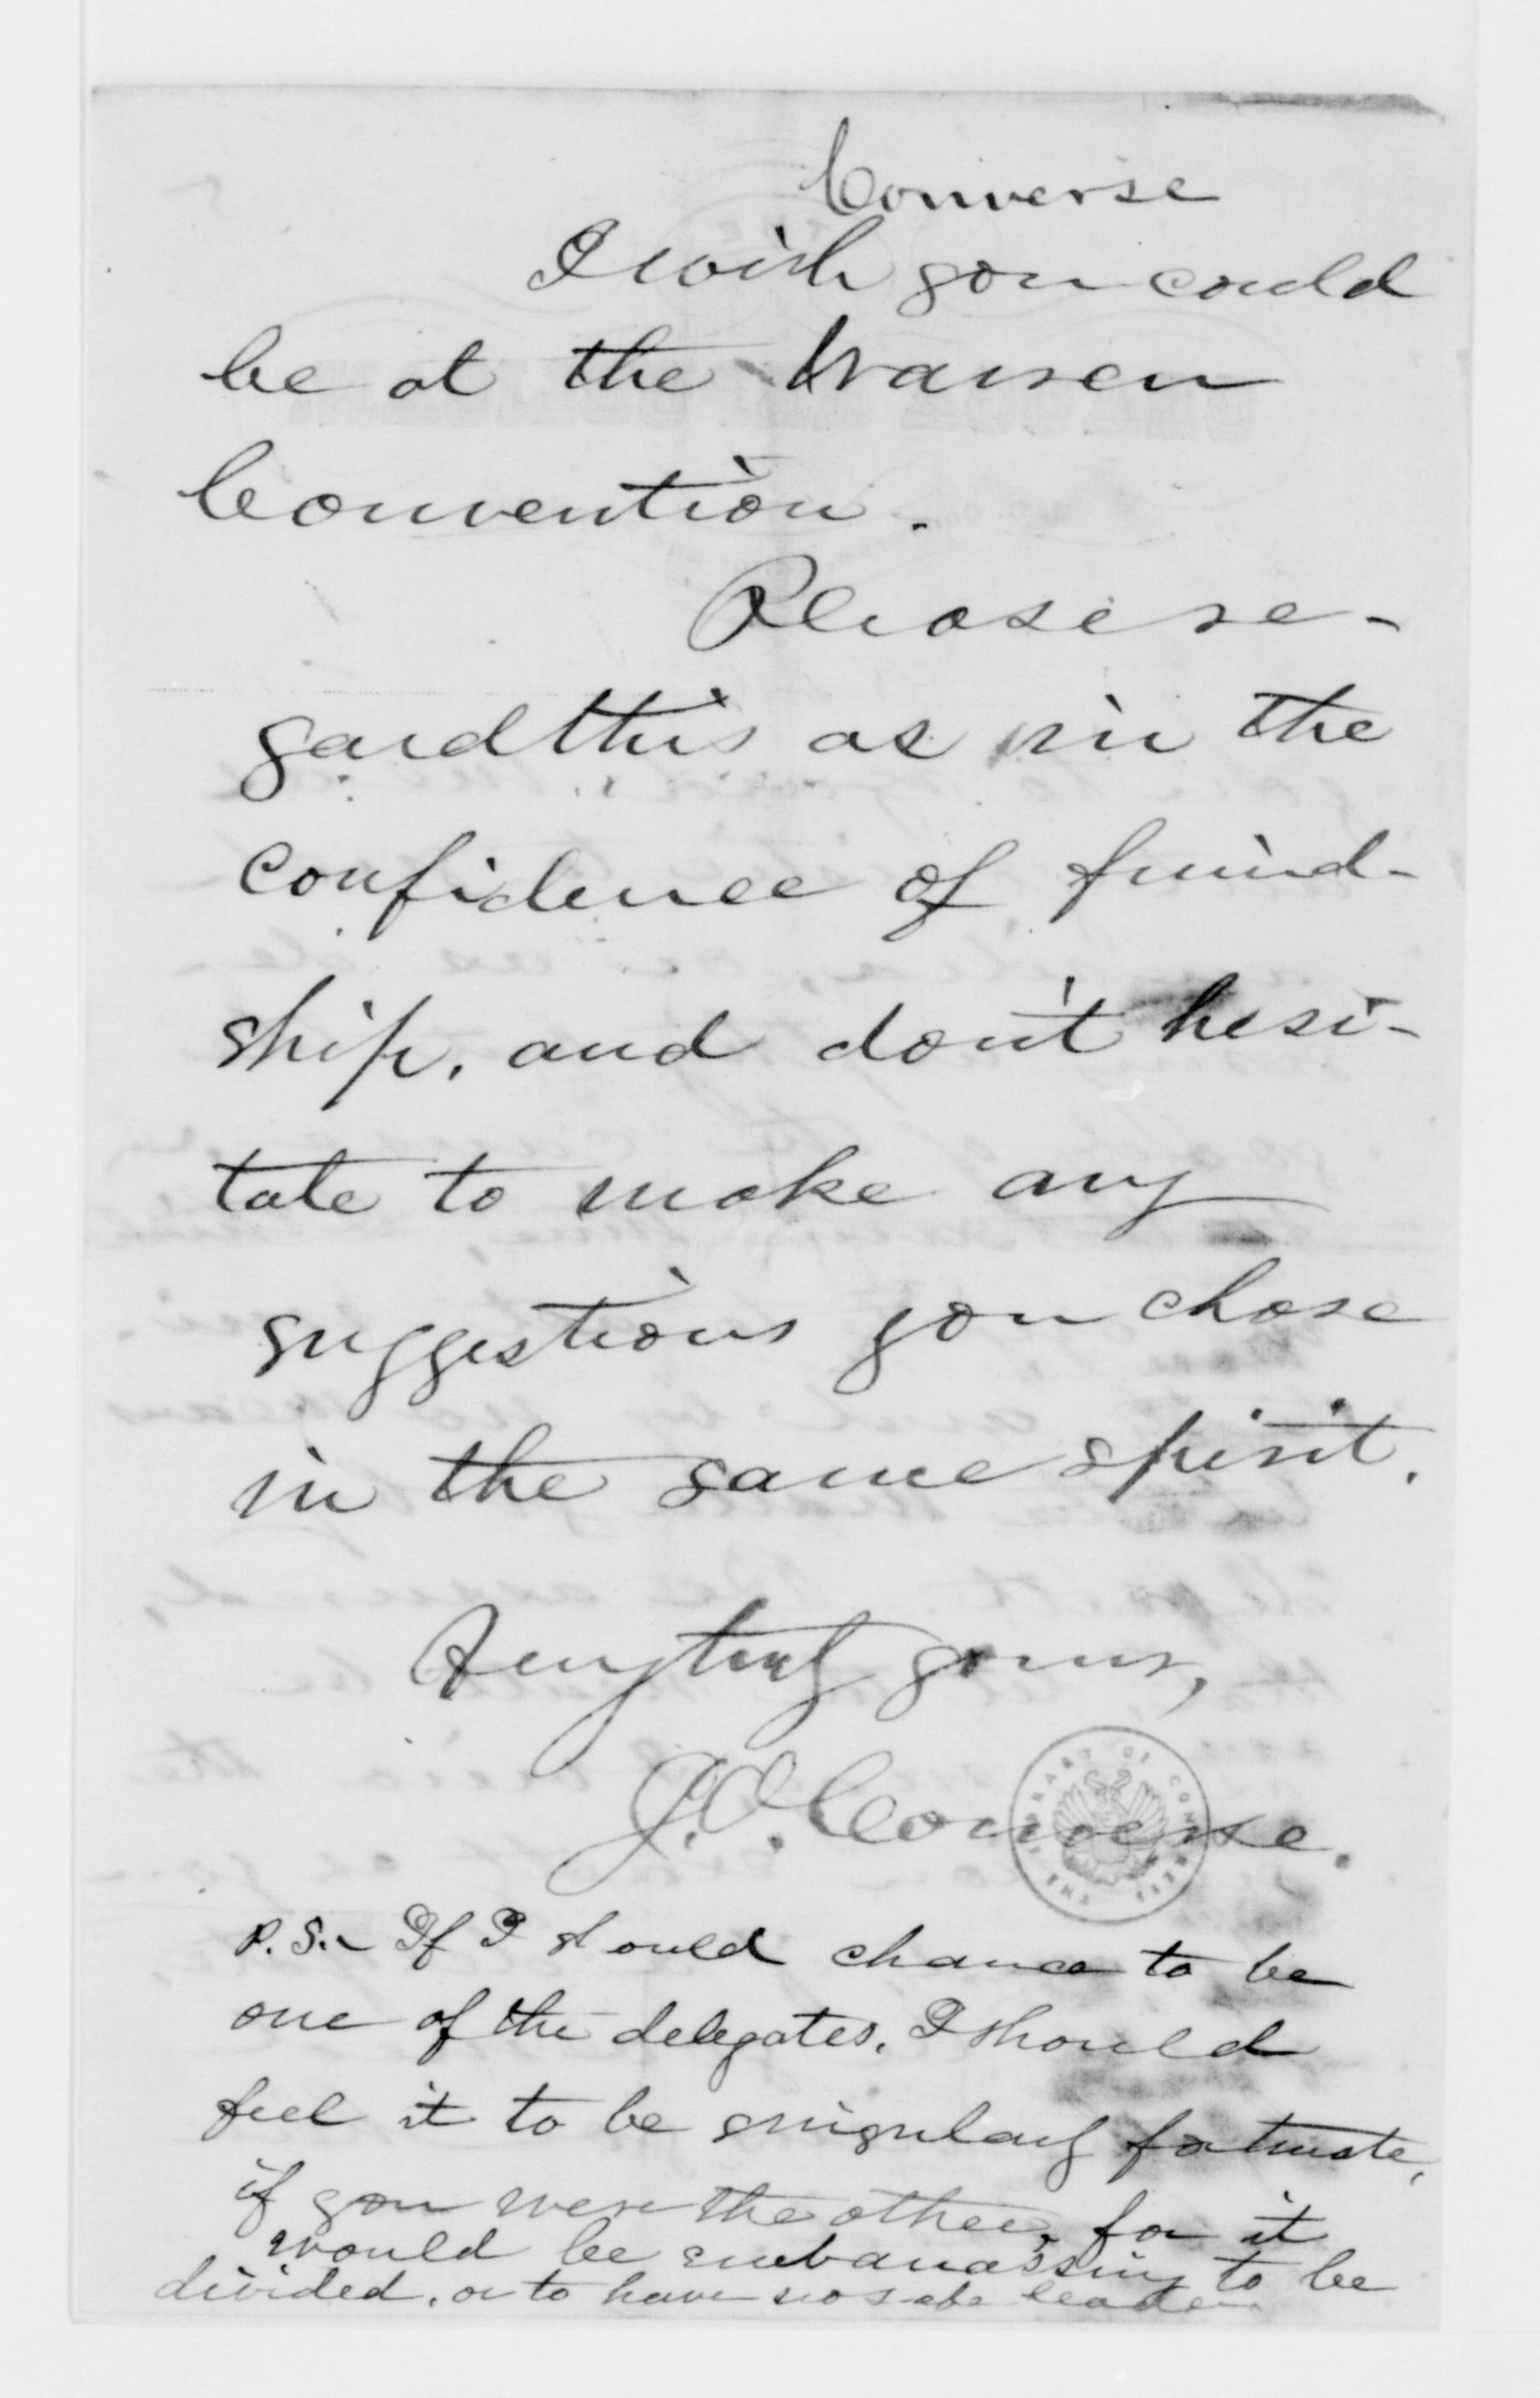 Converse
I wish you could
be at the Warren
Convention.
Please re-
gard this as in the
confidence of friend-
ship, and don't hesi-
tate to make any
suggestions you chose
in the same spirit.
Very truly yours,
J.O. Converse.
THE LIBRARY OF CONGRESS
P.S.- If I should chance to be
one of the delegates, I should
feel it to be singularly fortunate,
if you were the other, for it
would be embarrassing to be
divided, or to have no safe leader